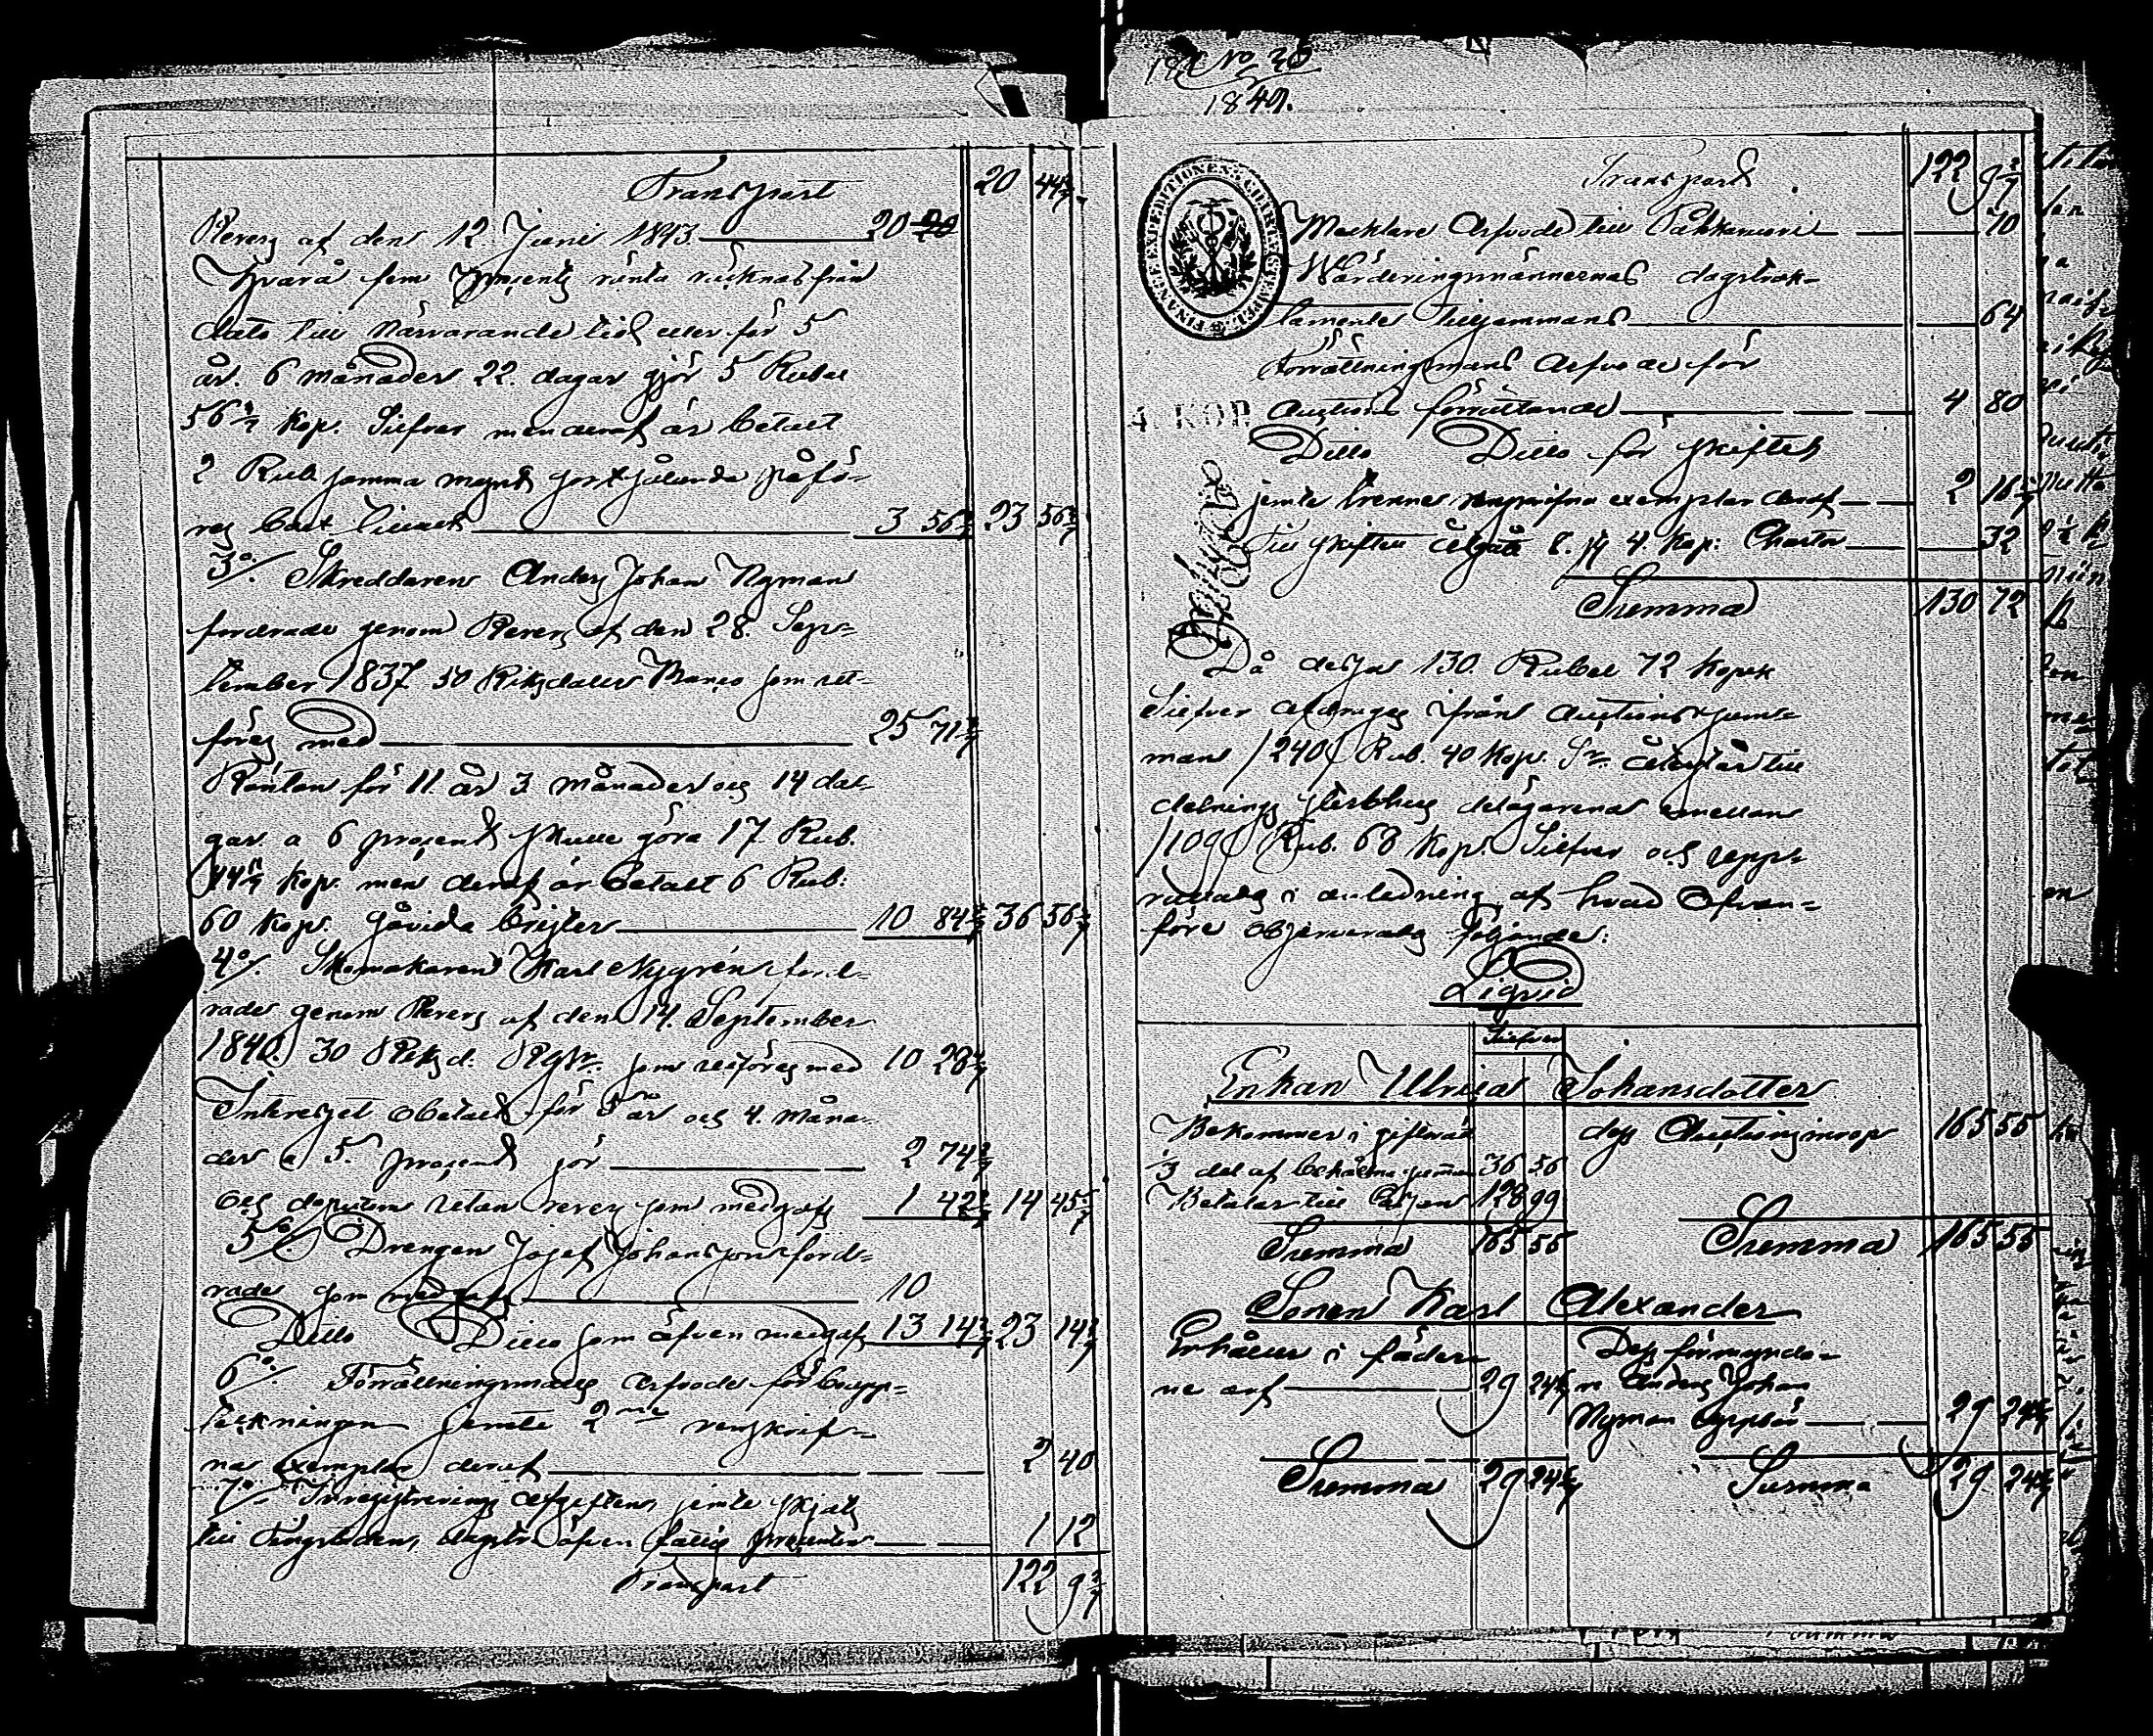 Transport 20 44 2/7
Revers af den 12. Junii 1843 20
Hvarå fem procents ränta räknas från
dato till närvarande tid eller för 5
år. 6 månader 22. dagar gjör 5 Rubel
56 4/7 Kop. Silfver men deraf är betalt
2 Rub. samma mynt
3 56 4/7 23 56 4/7
3o/. Skreddaren Anders Johan Nyman
fordrade genom Revers af den 28. Sep=
tember 1837 50 Riksdaler Banco som ut=
föres med 25 71 3/7
Räntan för 11 år 3 månader och 14 da=
gar a 6 procent skulle göra 17 Rub.
44 Kop. men deraf är betalt 6 Rub.
60 Kop. såvida brister 10 84 36 56
4o/. Skomakaren Karl Nygrén ford=
rade genom Revers af den 14. September
1840. 30 Riksd. Rgs. som utföres med 10 28 4/7
Intresset obetalt för 5 år och 4. måna=
der a 5. procent gör 2 74 2/7
och dessutom utan revers som medgafs 1 42 14 45 5/7
5o/. Drengen Josef Johansson ford=
rade som medgafs 10
Ditto Ditto som äfven medgafs 13 14 2/7 23 14 2/7
6o/. Förrättningsmans arfvode för bouppteckningen
jemte 2ne renskrif=
na exemplar deraf 2 40
7o/. Inregistrerings afgiften, jemte skjuts
till Tingstaden, 1 12
Transport 122 9 3/7
No 20
1849.
Transport 122 9 3/7
FINANCE EXPEDITIONENS CHARTÆ STEMPEL
Mäklare Arfvode till Pakkanen 70
Wärderingsmännernas dagtrak=
tamente tillsammans 64
Förrättningsmans Arfvode för
4 KOP. Auctions förrättande 4 80
Ditto Ditto för skiftet
jemte trenne renskrifna exemplar deraf 2 16
Till skiftet åtgått 8. st 4. Kop: Charta 32
Summa 130 72
Då dessa 130. Rubel 72 Kopek
Silfver afdrages ifrån Auctions sum=
man /240/ Rub. 40 Kop. Sr. återstår till
delning sterbhus delägarena emellan
/109/ Rub. 68 Kop. Silfver och upp=
rättats i anledning af hvad Ofvan=
före observerats följande:
Liqvid
Silfver
Enkan Ulrica Johansdotter
Bekommer i giftorät dess Auctionsinrop 165 55
1/3 del af behållna summan 36 56
Betalar till 128 99
Summa 165 55 Summa 165 55
Sonen Karl Alexander
Erhåller i fäder= Dess förmynda=
ne arf 29 24 re Anders Johan
Nyman uppbär 29 24
Summa 29 24 Summa 29 24